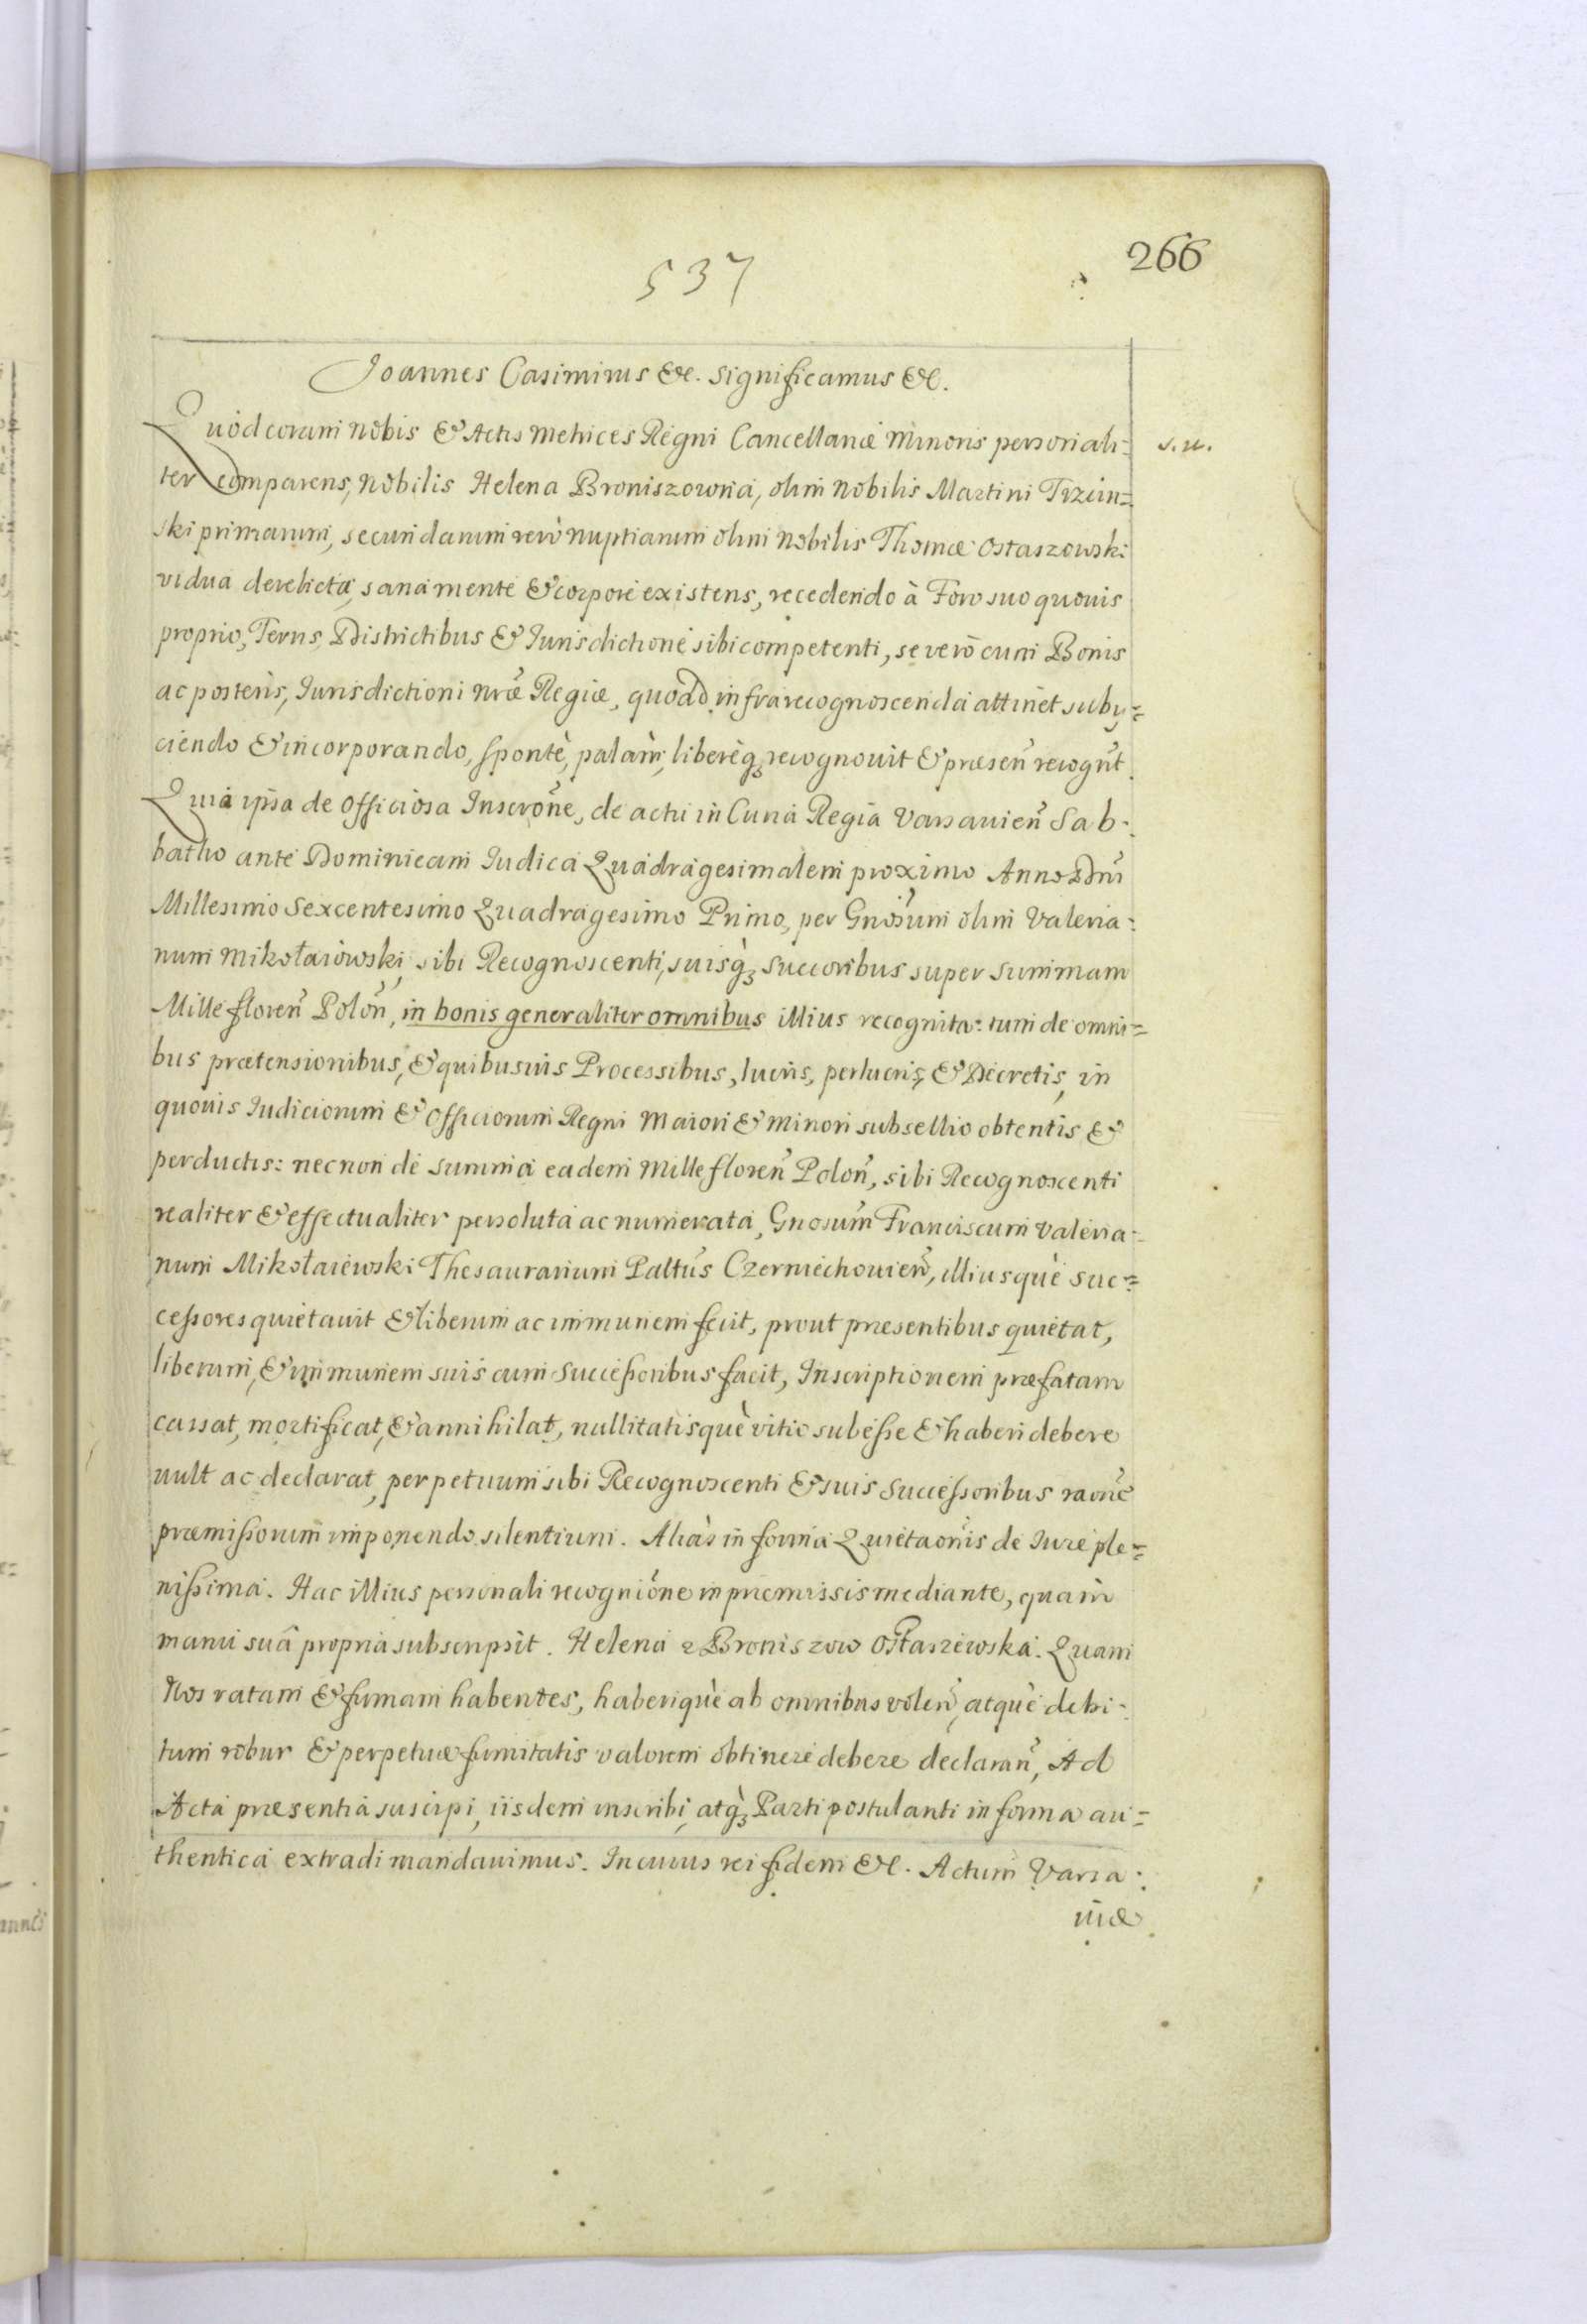 266
537
Joannes Casimirus &c. Significamus &c.
Quòd coram Nobis & Actis Metrices Regni Cancellariæ Minoris personali= s. u.
ter comparens, Nobilis Helena Broniszowna, olim Nobilis Martini Trzciń=
ski primarum, secundarum verò nuptiarum olim Nobilis Thomæ Ostaszowski
vidua derelicta, sana mente & corpore existens, recedendo à Foro suo quovis
proprio, Terris, Districtibus & Jurisdictione sibi competenti, se verò cum Bonis
ac posteris, Jurisdictioni nræ Regiæ, quoad infra recognoscenda attinet subij=
ciendo & incorporando, spontè, palàm, liberèq; recognovit & præsen recogn̄t.
Quia ipsa de Officiosa Inscrōne, de actu in Curia Regia Varsavien̄ Sab=
batho ante Dominicam Judica Quadragesimalem proximo Anno Dn̄i
Millesimo Sexcentesimo Quadragesimo Primo, per Gnōsum olim Valeria=
num Mikołaiowski, sibi Recognoscenti, suisq; succoribus super summam
Mille floren̄ Polon̄, in bonis generaliter omnibus illius recognita: tum de omni=
bus prætensionibus, & quibusvis Processibus, lucris, perlucris, & Decretis, in
quovis Judiciorum & Officiorum Regni Maiori & Minori subsellio obtentis &
perductis: necnon de summa eadem Mille floren̄ Polon̄, sibi Recognoscenti
realiter & effectualiter persoluta ac numerata, Gnosum Franciscum Valeria=
num Mikołaiewski Thesaurarium Palt̄us Czerniechovien̄, illiusquè suc=
cessores quietavit & liberum ac immunem fecit, prout præsentibus quietat,
liberum, & immunem suis cum Successoribus facit, Inscriptionem præfatam
cassat, mortificat, & annihilat, nullitatisquè vitio subesse & haberi debere
vult ac declarat, perpetuum sibi Recognoscenti & suis Successoribus raōne
præmissorum imponendo silentium. Aliàs in forma Quietaōnis de Jure ple=
nissima. Hac illius personali recogniōne in præmissis mediante, quam
manu suâ propria subscripsit. Helena z Broniszow Ostaszewska. Quam
Nos ratam & firmam habentes, haberiquè ab omnibus volen̄, atquè debi=
tum robur & perpetuæ firmitatis valorem obtinere debere declaran̄, Ad
Acta præsentia suscipi, iisdem inscribi, atq; Parti postulanti in forma au=
thentica extradi mandavimus. In cuius rei fidem &c. Actum Varsa=
viæ